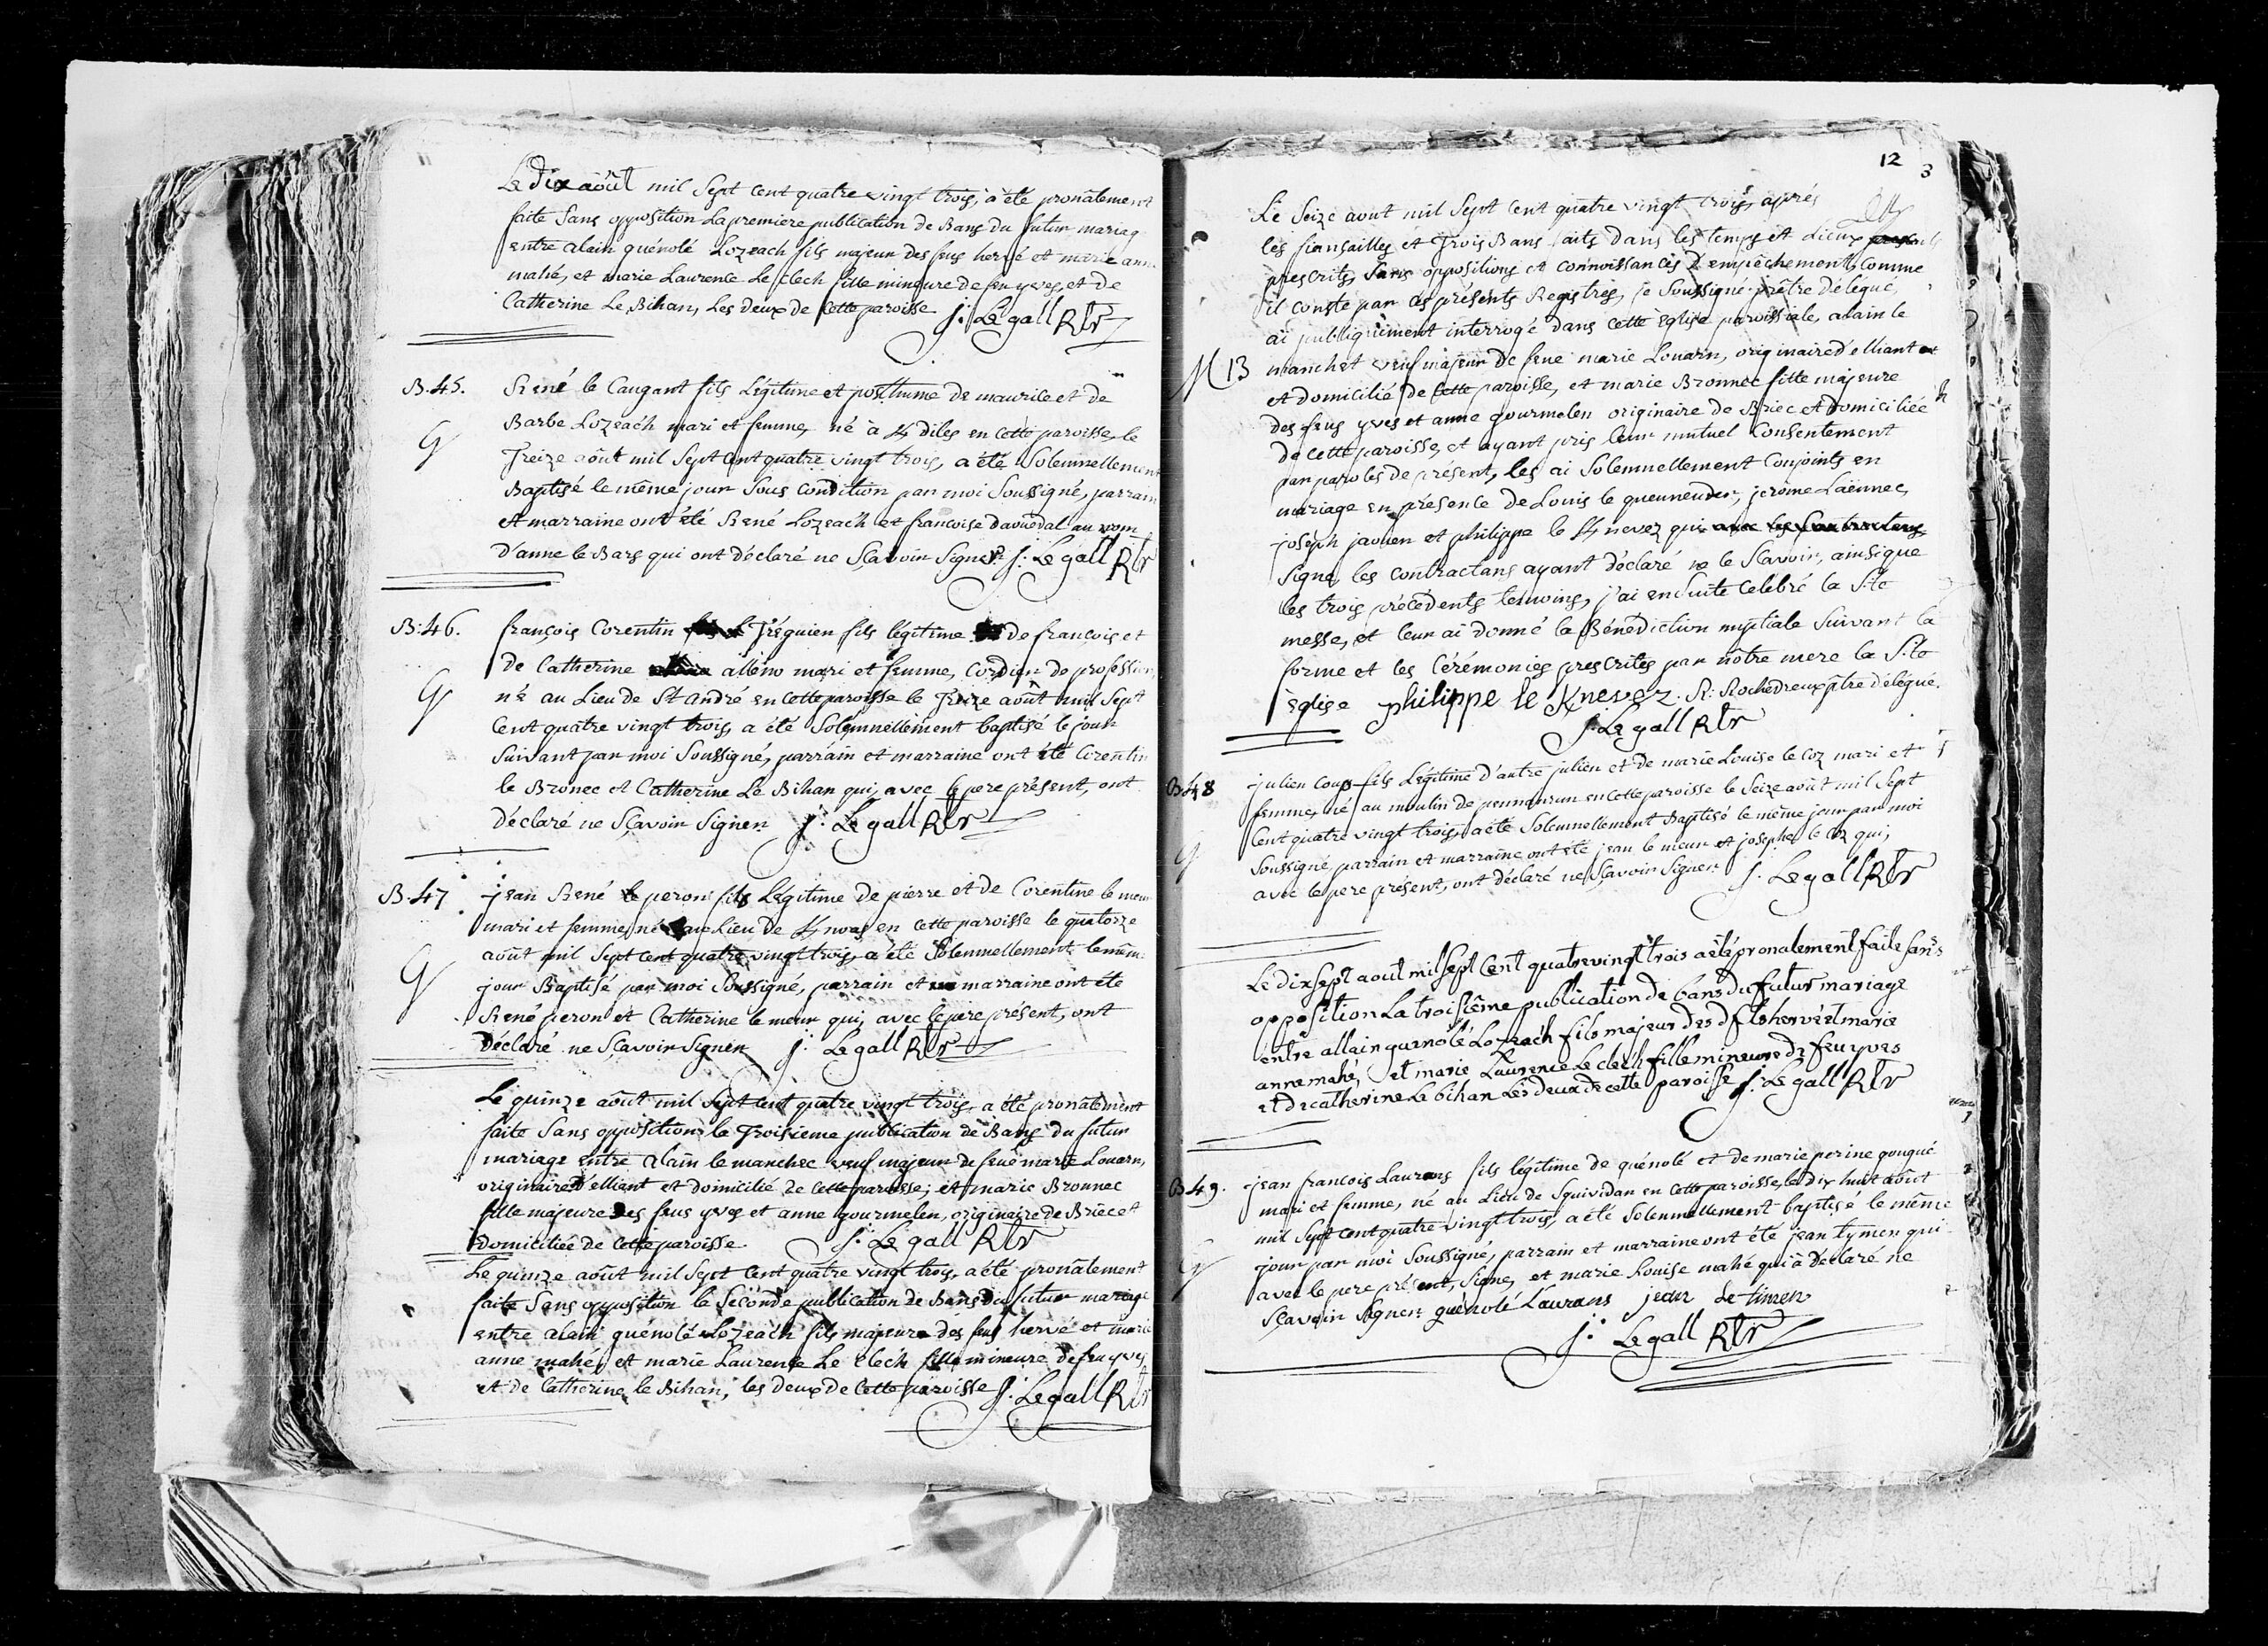 Le dix août mil Sept Cent quatre vingt trois, à été pronâlement
faite Sans opposition La premiere publication de Bans du futur mariag
entre alain guénolé Lozeach fils majeur des feus hervé et marie ann
mahé, et marie Laurence Le Clech fille mineure de feu yves, et de
Catherine Le Bihan, Les deux de cette paroisse J: Le gall Rtr
B.45. René le Caugant fils Légitime et posthume de maurice et de
Barbe Lozeach mari et femme, né à en cette paroisse, le
G
Treize août mil Sept Cent quatre vingt trois, a été Solemnellement
Baptisé le même jour Sous condition par moi Soussigné, parrain
et marraine ont été René Lozeach et francoise daouëdal au nom
d'anne le Bars qui ont déclaré ne Sçavoir Signer J: Le gall Rtr
B:46. françois Corentin Tréguien fils légitime de françois et
de Catherine alléno mari et femme, Cordier de profession
G
né au Lieu de St andré en cette paroisse le Treize août mil Sept
Cent quatre vingt trois, a été Solemnellement baptisé le jour
Suivant par moi Soussigné, parrain et marraine ont été Corentin
le Bronec et Catherine Le Bihan qui, avec le pere présent, ont
déclaré ne Sçavoir Signer J: Le gall Rtr
B.47 jean René le peron fils Légitime de pierre et de Corentine le meur
mari et femme, né au Lieu de en cette paroisse le quatorze
août mil Sept Cent quatre vingt trois, a été Solemnellement le mêm
G
jour Baptisé par moi Soussigné, parrain et marraine ont été
René peron et Catherine le meur qui, avec le pere présent, ont
Déclaré ne Sçavoir Signer J: Le gall Rtr
Le quinze août mil Sept Cent quatre vingt trois, a été pronâlement
faite Sans opposition la Troisieme publication de Bans du futur
mariage entre alain le manchec veuf majeur de feue marie Louarn,
originaire d'elliant et domicilié de Cette paroisse; et marie Bronnec
fille majeure Des feus yves et anne gourmelen, originaire de Briec et
domiciliée de Cette paroisse J: Le gall Rtr
Le quinze août mil Sept Cent quatre vingt trois, a été pronâlement
faite Sans opposition la Seconde publication de Bans du futur mariage
entre alain guénolé Lozeach fils majeur des feus hervé et marie
anne mahé, et marie Laurence Le Cléch fille mineure de feu yves
et de Catherine le Bihan, les deux de Cette paroisse J: Le gall Rtr
12
3
Le Seize aout mil Sept Cent quatre vingt trois, aprés
les fiançailles et Trois Bans faits dans les temps et Lieux
prescrits, Sans oppositions et connoissances d'empêchement, comme
il conste par ces présents Registres, je Soussigné prêtre délégué,
ai publiquement interrogé dans cette Eglise paroissiale, alain le
M 13 manchet veuf majeur de feue marie Louarn, originaire d'elliant et
et domicilié de Cette paroisse, et marie Bronnec fille majeure
des feus yves et anne gourmelen originaire de Briec et domiciliée
de cette paroisse, et ayant pris leur mutuel Consentement
par paroles de présent, les ai Solemnellement Conjoints en
mariage en présence de Louis le queuneuder, jerôme Laënnec,
joseph jaouen et philippe le nevez qui avec les Contractans
Signe, les contractans ayant déclaré ne le Sçavoir, ainsi que
les trois précédents temoins, j'ai ensuite Celébré la Ste
messe, et leur ai donné la Bénédiction nuptiale Suivant la
forme et les Cérémonies prescrites par nôtre mere la Ste
Eglise philippe le Knevez. R: Rochedreux ptre délégué.
J: Le gall Rtr
B48 julien Coup fils Légitime d'autre julien et de marie Louise le Coz mari et
femme, né au moulin de pennanrun en Cette paroisse le Seize août mil Sept
Cent quatre vingt trois, a été Solemnellement Baptisé le même jour par moi
G
Soussigné, parrain et marraine ont été jean le meur et josephe le Coz qui,
avec le pere présent, ont déclaré ne Sçavoir Signer J: Le gall Rtr
Le dixsept aout mil Sept Cent quatrevingt trois a été pronalement faite Sans
opposition La troisième publication de bans du futur mariage
entre allain guenolé Lozeach fils majeur des dfts hervé et marie
anne mahé, et marie Laurence Le clech fille mineure de feu yves
et de catherine Le bihan Les deux de cette paroisse J: Le gall Rtr
B49. jean francois Laurans fils légitime de guénolé et de marie perine gougué
mari et femme, né au Lieu de Squividan en Cette paroisse, le dix huit août
mil Sept cent quatre vingt trois, a été Solemnellement baptisé le même
G
jour par moi Soussigné, parrain et marraine ont été jean tymen qui
avec le pere présent, Signe, et marie Louise mahé qui à déclaré ne
Sçavoir Signer guénolé Laurans jean Le timen
J: Le gall Rtr